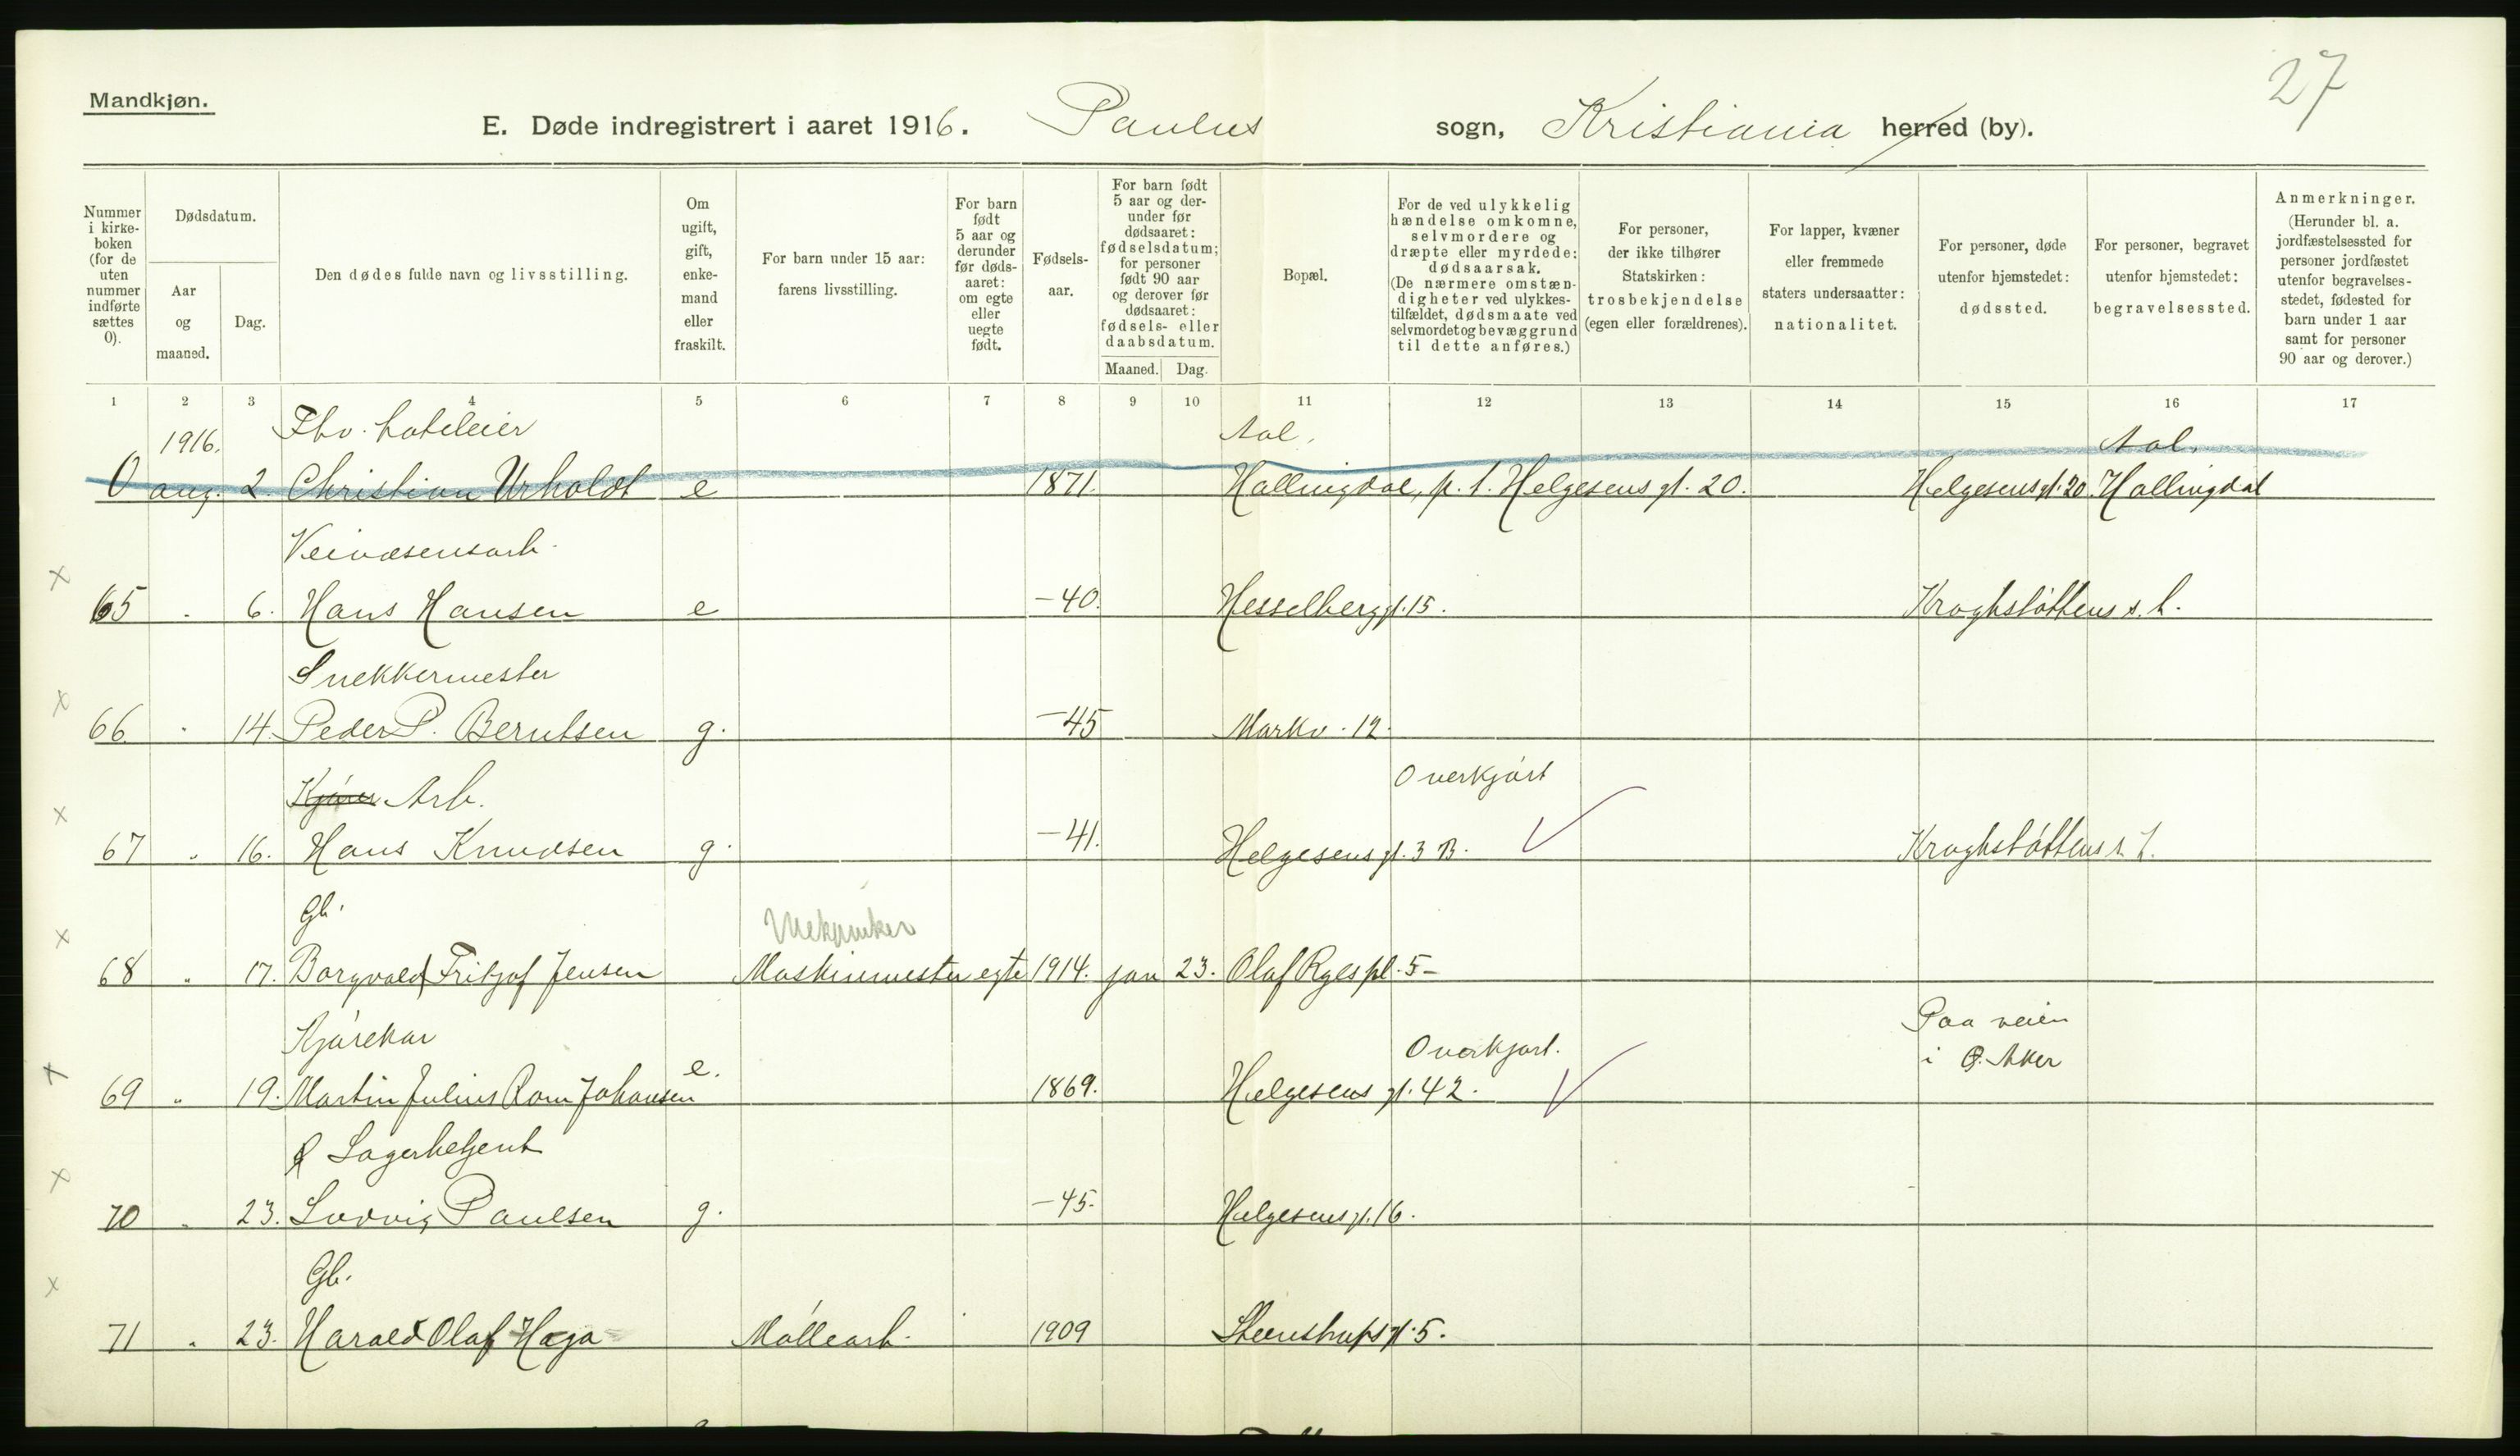 27
Mandkjøn.
E. Døde indregistrert i aaret 1916. Paulus sogn, Kristiania herred (by).
Nummer i kirkeboken (for de uten nummer indførte sættes 0).
Dødsdatum.
Aar og maaned.
Dag.
Den dødes fulde navn og livsstilling.
Om ugift, gift, enkemand eller fraskilt.
For barn under 15 aar: farens livsstilling.
For barn født 5 aar og derunder før dødsaaret: om egte eller uegte født.
Fødselsaar.
For barn født 5 aar og derunder før dødsaaret: fødselsdatum; for personer født 90 aar og derover før dødsaaret: fødsels- eller daabsdatum.
Maaned. Dag.
Bopæl.
For de ved ulykkelig hændelse omkomne, selvmordere og dræpte eller myrdede: dødsaarsak. (De nærmere omstændigheter ved ulykkestilfældet, dødsmaate ved selvmordet og bevæggrund til dette anføres.)
For personer, der ikke tilhører Statskirken: trosbekjendelse (egen eller forældrenes).
For lapper, kvæner eller fremmede staters undersaatter: nationalitet.
For personer, døde utenfor hjemstedet: dødssted.
For personer, begravet utenfor hjemstedet: begravelsessted.
Anmerkninger. (Herunder bl. a. jordfæstelsessted for personer jordfæstet utenfor begravelsesstedet, fødested for barn under 1 aar samt for personer 90 aar og derover.)
1 2 3 4 5 6 7 8 9 10 11 12 13 14 15 16 17
1916. Fhv. hoteleier Aal, Aal,
0 aug. 2. Christian Urholdt e 1871. Hallingdal, p. t. Helgesens gt. 20. Helgesens gt. 20 Hallingdal
Veivæsensarb.
65 " 6. Hans Hansen e -40. Hesselberggt. 15. Kroghstøttens s. h.
Snekkermester
66 " 14. Peder P. Berntsen g. -45 Markv. 12.
Kjører Arb. Overkjørt
67 " 16. Hans Knudsen g. -41. Helgesens gt. 3 B. Kroghstøttens s. h.
Gb. Mekaniker
68 " 17. Borgvald Fritjof Jensen Maskinmester egte 1914. jan 23. Olaf Ryes pl. 5-
Kjørekar Overkjørt. Paa veien
i Ø. Aker
69 " 19. Martin Julius Rom Johansen e. 1869. Helgesens gt. 42.
Lagerbetjent
70 " 23. Ludvig Paulsen g. -45. Helgesens gt. 16.
Gb.
71 " 23. Harald Olaf Haga Møllearb. 1909 Steenstrups gt. 5.